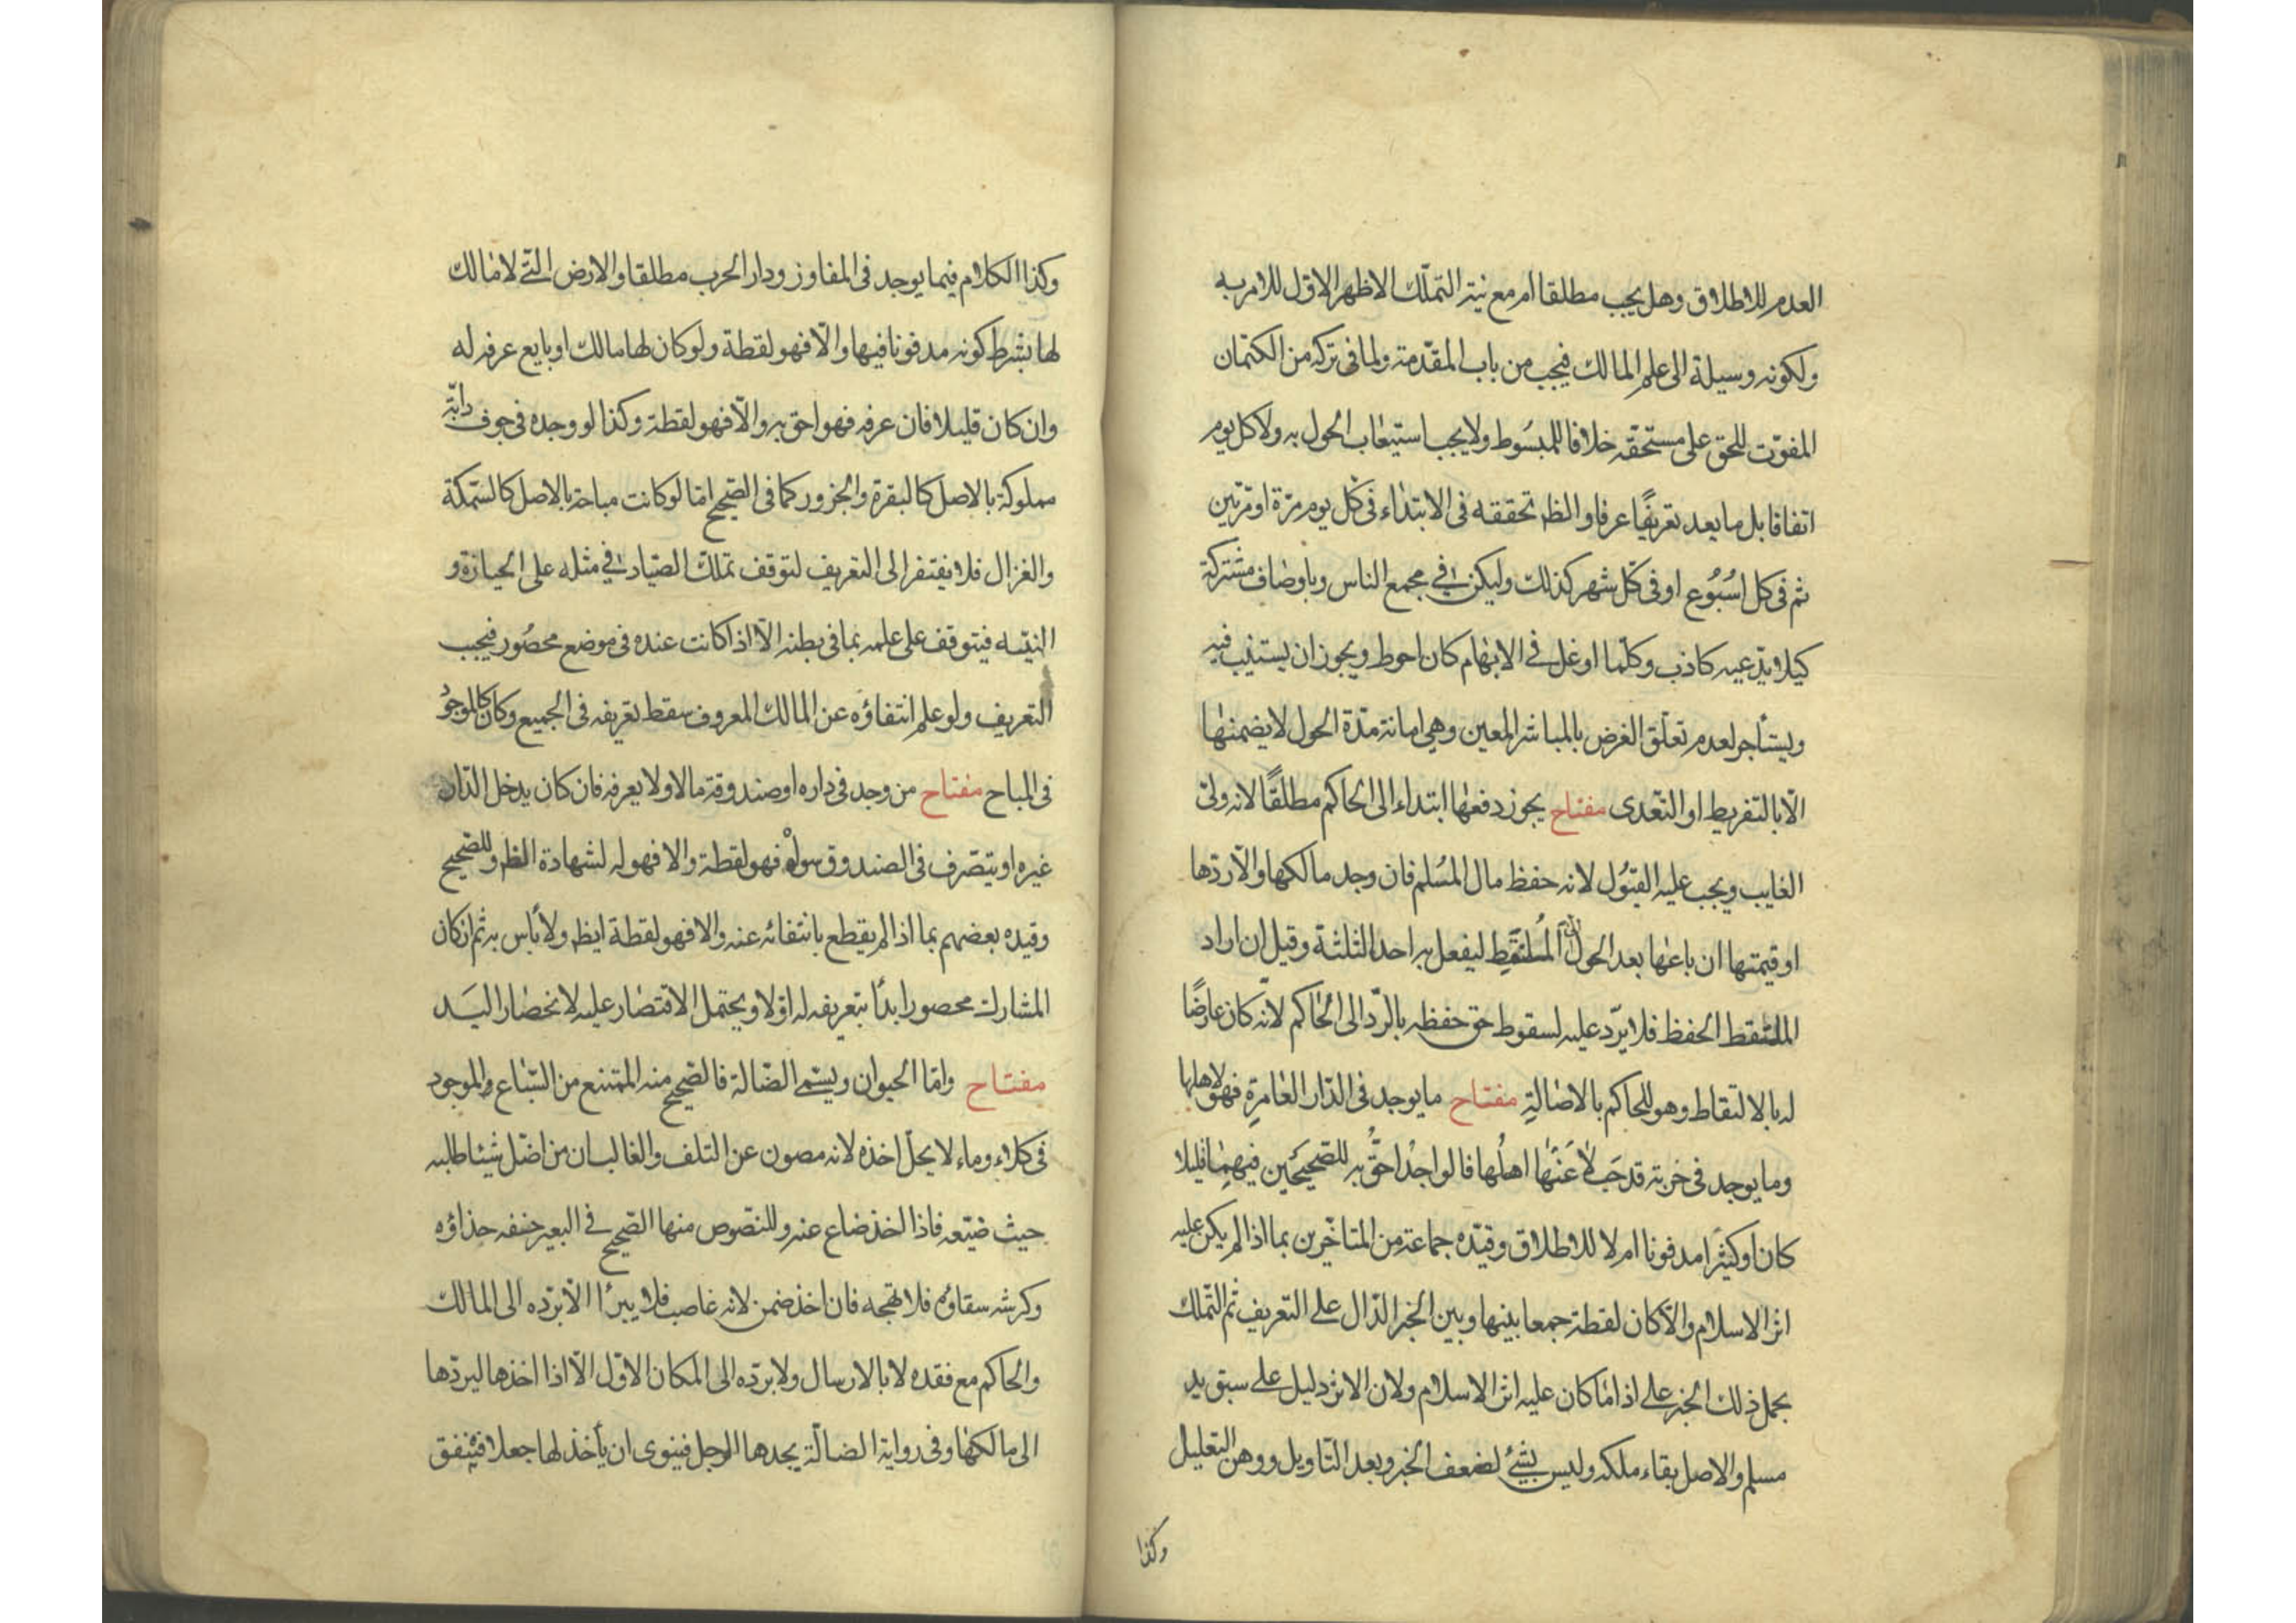 العدم للاطلاق وهل يجب مطلقا ام مع نية التملك الاظهر الاول للامر به
ولكونه وسيلة الى علم المالك فيجب من باب المقدمة ولما فى تركه من الكتمان
المفوّت للحق على مستحقّه خلافا للمبسُوط ولا يجب استيعاب الحول به ولا كل يوم
اتفاقا بل ما يعد تعريفًا عرفا والظ تحققه فى الابتداء فى كل يوم مرّة او مرّتين
ثم فى كل اسُبُوع او فى كلّ شهر كذلك وليكن فى مجمع الناس وباوصاف مشتركة
كيلا يدّعيه كاذب وكلّما اوغل فى الابهام كان احوط ويجوز ان يستنيب فيه
ويستأجر لعدم تعلّق الغرض بالمباشر المعين وهى امانة مدّة الحول لا يضمنها
الّا بالتفريط او التعدى مفتاح يجوز دفعها ابتداء الى الحاكم مطلقًا لانه ولىّ
الغايب ويجب عليه القبُول لانه حفظ مال المُسلم فان وجد مالكها والّا ردّها
او قيمتها ان باعها بعد الحول الى المُلتَقِط ليفعل به احد الثلثة وقيل ان اراد
الملتقط الحفظ فلا يردّ عليه لسقوط حق حفظه بالردّ الى الحاكم لانّه كان عارضًا
له بالالتقاط وهو للحاكم بالاصالةِ مفتاح ما يوجد فى الدّار العامرةِ فهو لاهلها
وما يوجد فى خربة قد جَلا عَنها اهلُها فالواجدُ احقُّ به للصّحيحَين فيهما قليلا
كان او كثيرًا مدفونا ام لا للاطلاق وقيّده جماعة من المتاخّرين بما اذا لم يكن عليه
اثر الاسلام والّا كان لقطة جمعا بينها وبين الخبر الدّال على التعريف ثم التملك
بحمل ذلك الخبر على اذا ما كان عليه اثر الاسلام ولان الاثر دليل على سبق يد
مسلم والاصل بقاء ملكه وليس بشئ لضعف الخبر وبعد التاويل ووهن التعليل
وكذا
وكذا الكلام فيما يوجد فى المفاوز ودار الحرب مطلقا والارض الّتى لا مالك
لها بشرط كونه مدفونا فيها والّا فهو لقطة ولو كان لها مالك او بايع عرفه له
وان كان قليلا فان عرفه فهو احق به والّا فهو لقطة وكذا لو وجده فى جوف دابّة
مملوكة بالاصل كالبقرة والجزور كما فى الصّحيح امّا لو كانت مباحة بالاصل كالسّمكة
والغزال فلا يفتقر الى التعريف لتوقف تملك الصّياد فى مثله على الحيازة و
النيّه فيتوقف على علمه بما فى بطنه الّا اذا كانت عنده فى موضع محصُور فيجب
التعريف ولو علم انتفاؤه عن المالك المعروف سقط تعريفه فى الجميع وكان كالموجُود
فى المباح مفتاح من وجد فى داره او صندوقة مالا ولا يعرفه فان كان يدخل الدّار
غيره او يتصّرف فى الصندوق سواه فهو لقطة والا فهو له لشهادة الظ وللصّحيح
وقيده بعضهم بما اذا لم يقطع بانتفائه عنه والا فهو لقطة ايظ ولا بأس به ثم ان كان
المشارك محصورا بدأ بتعريفه له اوّلا ويحتمل الاقتصار عليه لانحصار اليَد
مفتاح وامّا الحيوان ويسّمى الضالة فالصّحيح منه الممتنع من السّباع والموجود
فى كلاء وماء لا يحلّ اخذه لانه مصون عن التلف والغالب ان من اضّل شيئا طلبه
حيث ضيّعه فاذا اخذ ضاع عنه وللنصّوص منها الصّحيح فى البعير خفه حذاؤه
وكرشه سقاؤه فلا تهجه فان اخذ ضمن لانه غاصب فلا يبرأ الّا بردّه الى المالك
والحاكم مع فقده لا بالارسال ولا بردّه الى المكان الاوّل الّا اذا اخذها ليردّها
الى مالكها وفى رواية الضالّة يجدها الرجل فينوى ان يأخذ لها جعلا فينفق